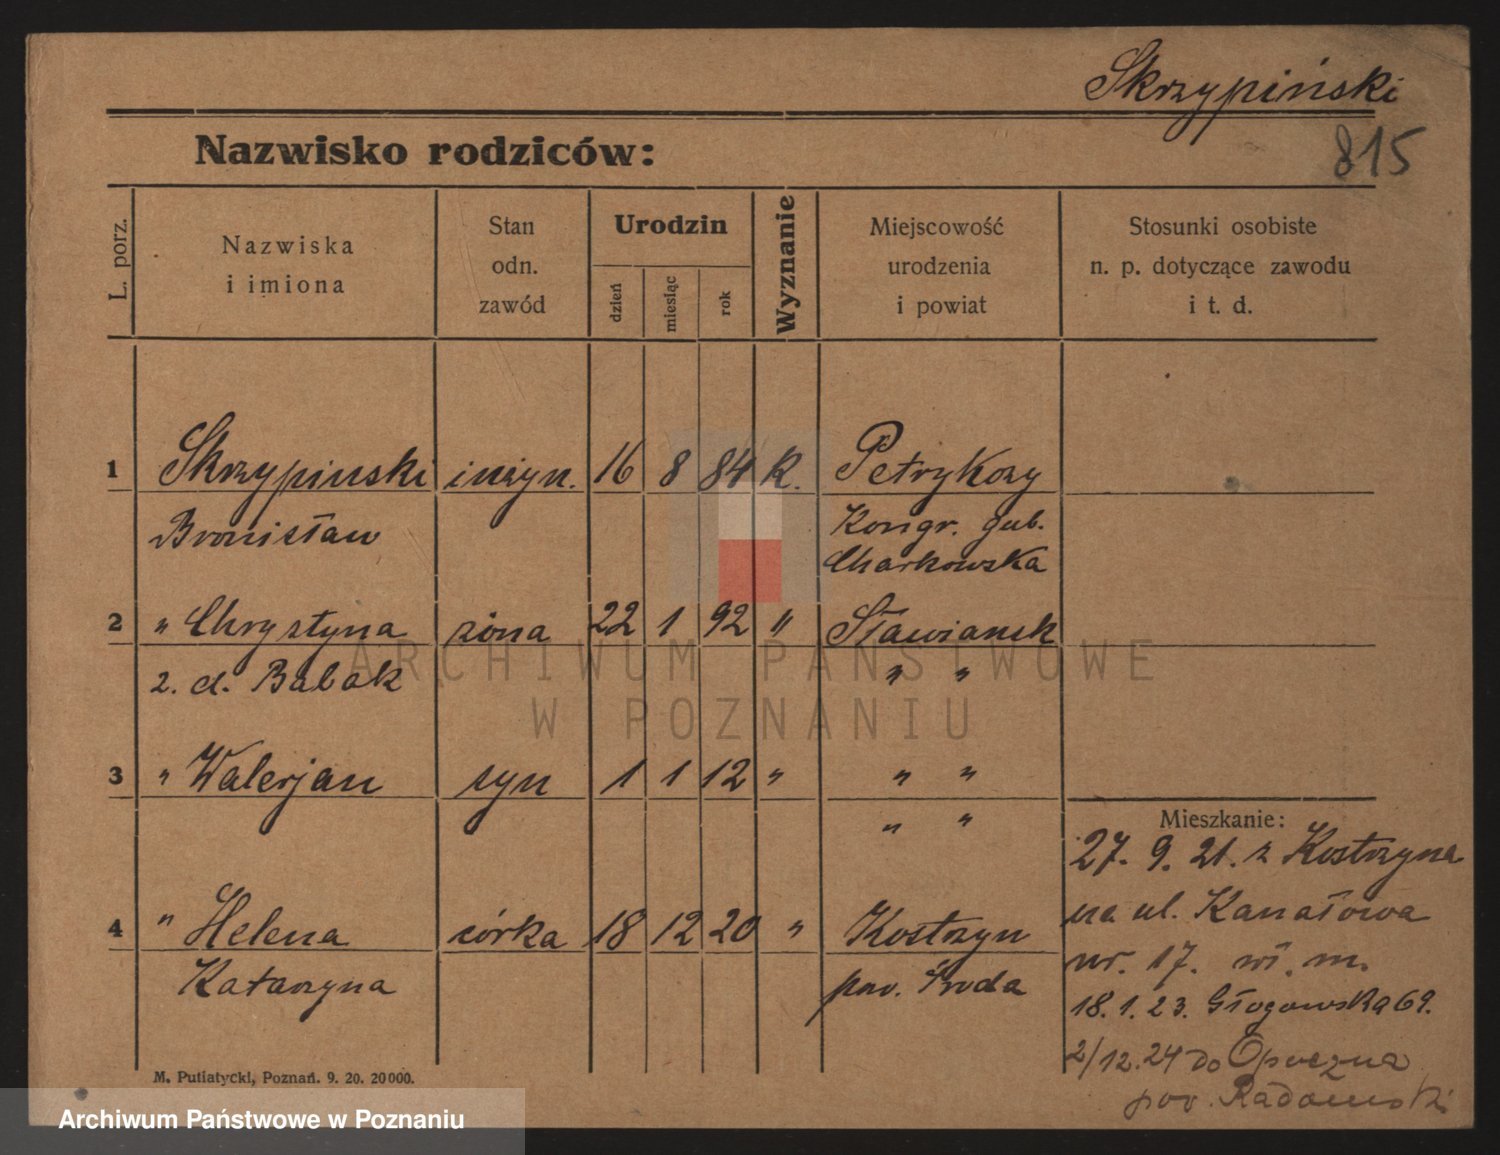 Skrzypiński
815
Nazwisko rodziców:
L. porz.
Nazwiska
i imiona
Stan
odn.
zawód
Urodzin
dzień
miesiąc
rok
Wyznanie
Miejscowość
urodzenia
i powiat
Stosunki osobiste
n. p. dotyczące zawodu
i t. d.
1 Skrzypinski inżyn. 16 8 84 K. Petrykozy
Bronisław Kongr. gub.
Charkowska
2 " Chrystyna żona 22 1 92 " Sławiansk
z. d. Babak " "
3 " Walerjan syn 1 1 12 " " "
" "
Mieszkanie:
27. 9. 21. z Kostrzyna
4 " Helena córka 18 12 20 " Kostrzyn
na ul. Kanałowa
Katarzyna pow. Środa
nr. 17. wł. m.
18. 1. 23. Głogowska 69.
2/12.24 do Opoczna
pow. Radomski
M. Putiatycki, Poznań. 9. 20. 20000.
ARCHIWUM PAŃSTWOWE
W POZNANIU
Archiwum Państwowe w Poznaniu